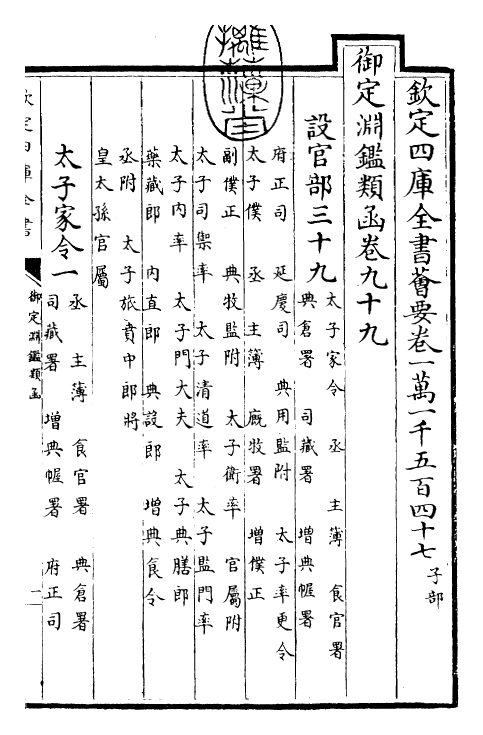 欽定四庫全書薈要卷一萬一千五百四十七 子部
御定淵鑑類函卷九十九
設官部三十九 太子家令 丞 主簿 食官署
典倉署 司藏署 增典幄署
府正司 延慶司 典用監附 太子率更令
太子僕 丞 主簿 廐牧署 增僕正
副僕正 典牧監附 太子衛率 官屬附
太子司禦率 太子清道率 太子監門率
太子内率 太子門大夫 太子典膳郎
藥藏郎 内直郎 典設郎 增典食令
丞附 太子旅賁中郎將
皇太孫官屬
太子家令一 丞 主簿 食官署 典倉署
司藏署 增典幄署 府正司
欽定四庫全書
御定淵鑑類函
一